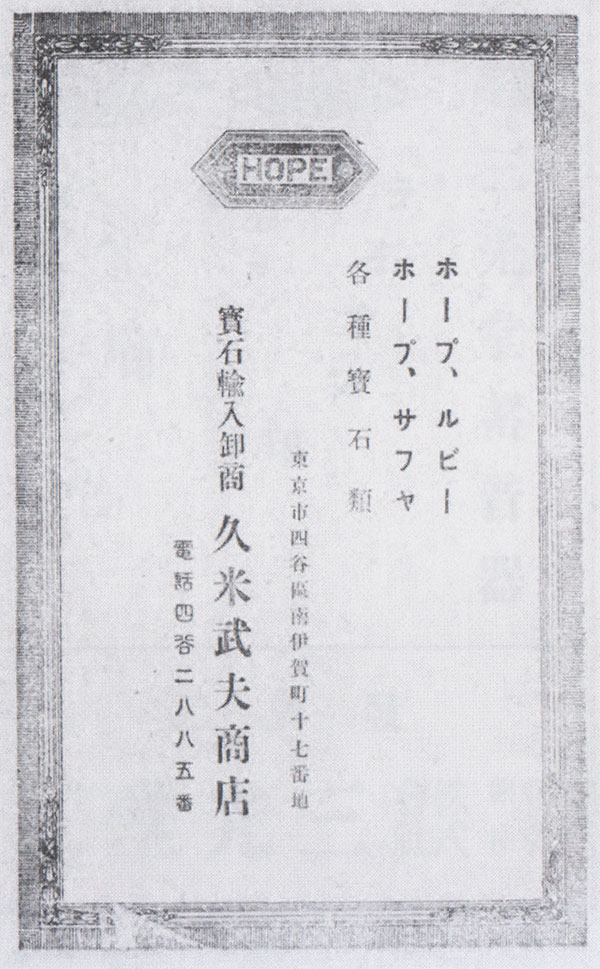 HOPE
ホープ、ルビー
ホープ、サフャ
各種寶石類
東京市四谷區南伊賀町十七番地
寶石輸入卸商 久米武夫商店
電話四谷二八八五番